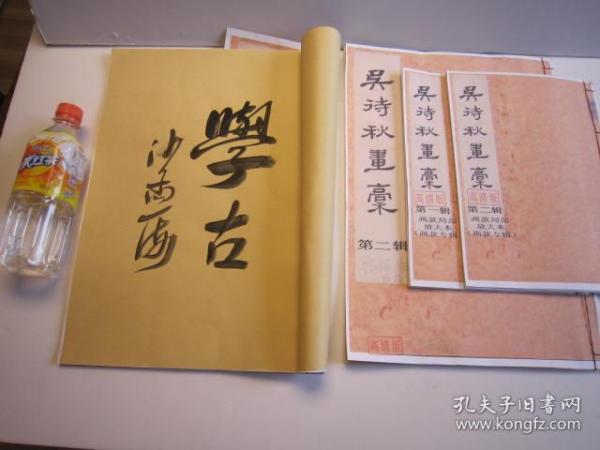 學古
沙孟海
吴待秋畫稾
第二辑
高清版
吴待秋畫稾
高清版
第一辑
画款局部
放大本
吴待秋畫稾
高清版
第二辑
画款局部
放大本
(画款专辑)
孔夫子旧书网
www.kongfz.com